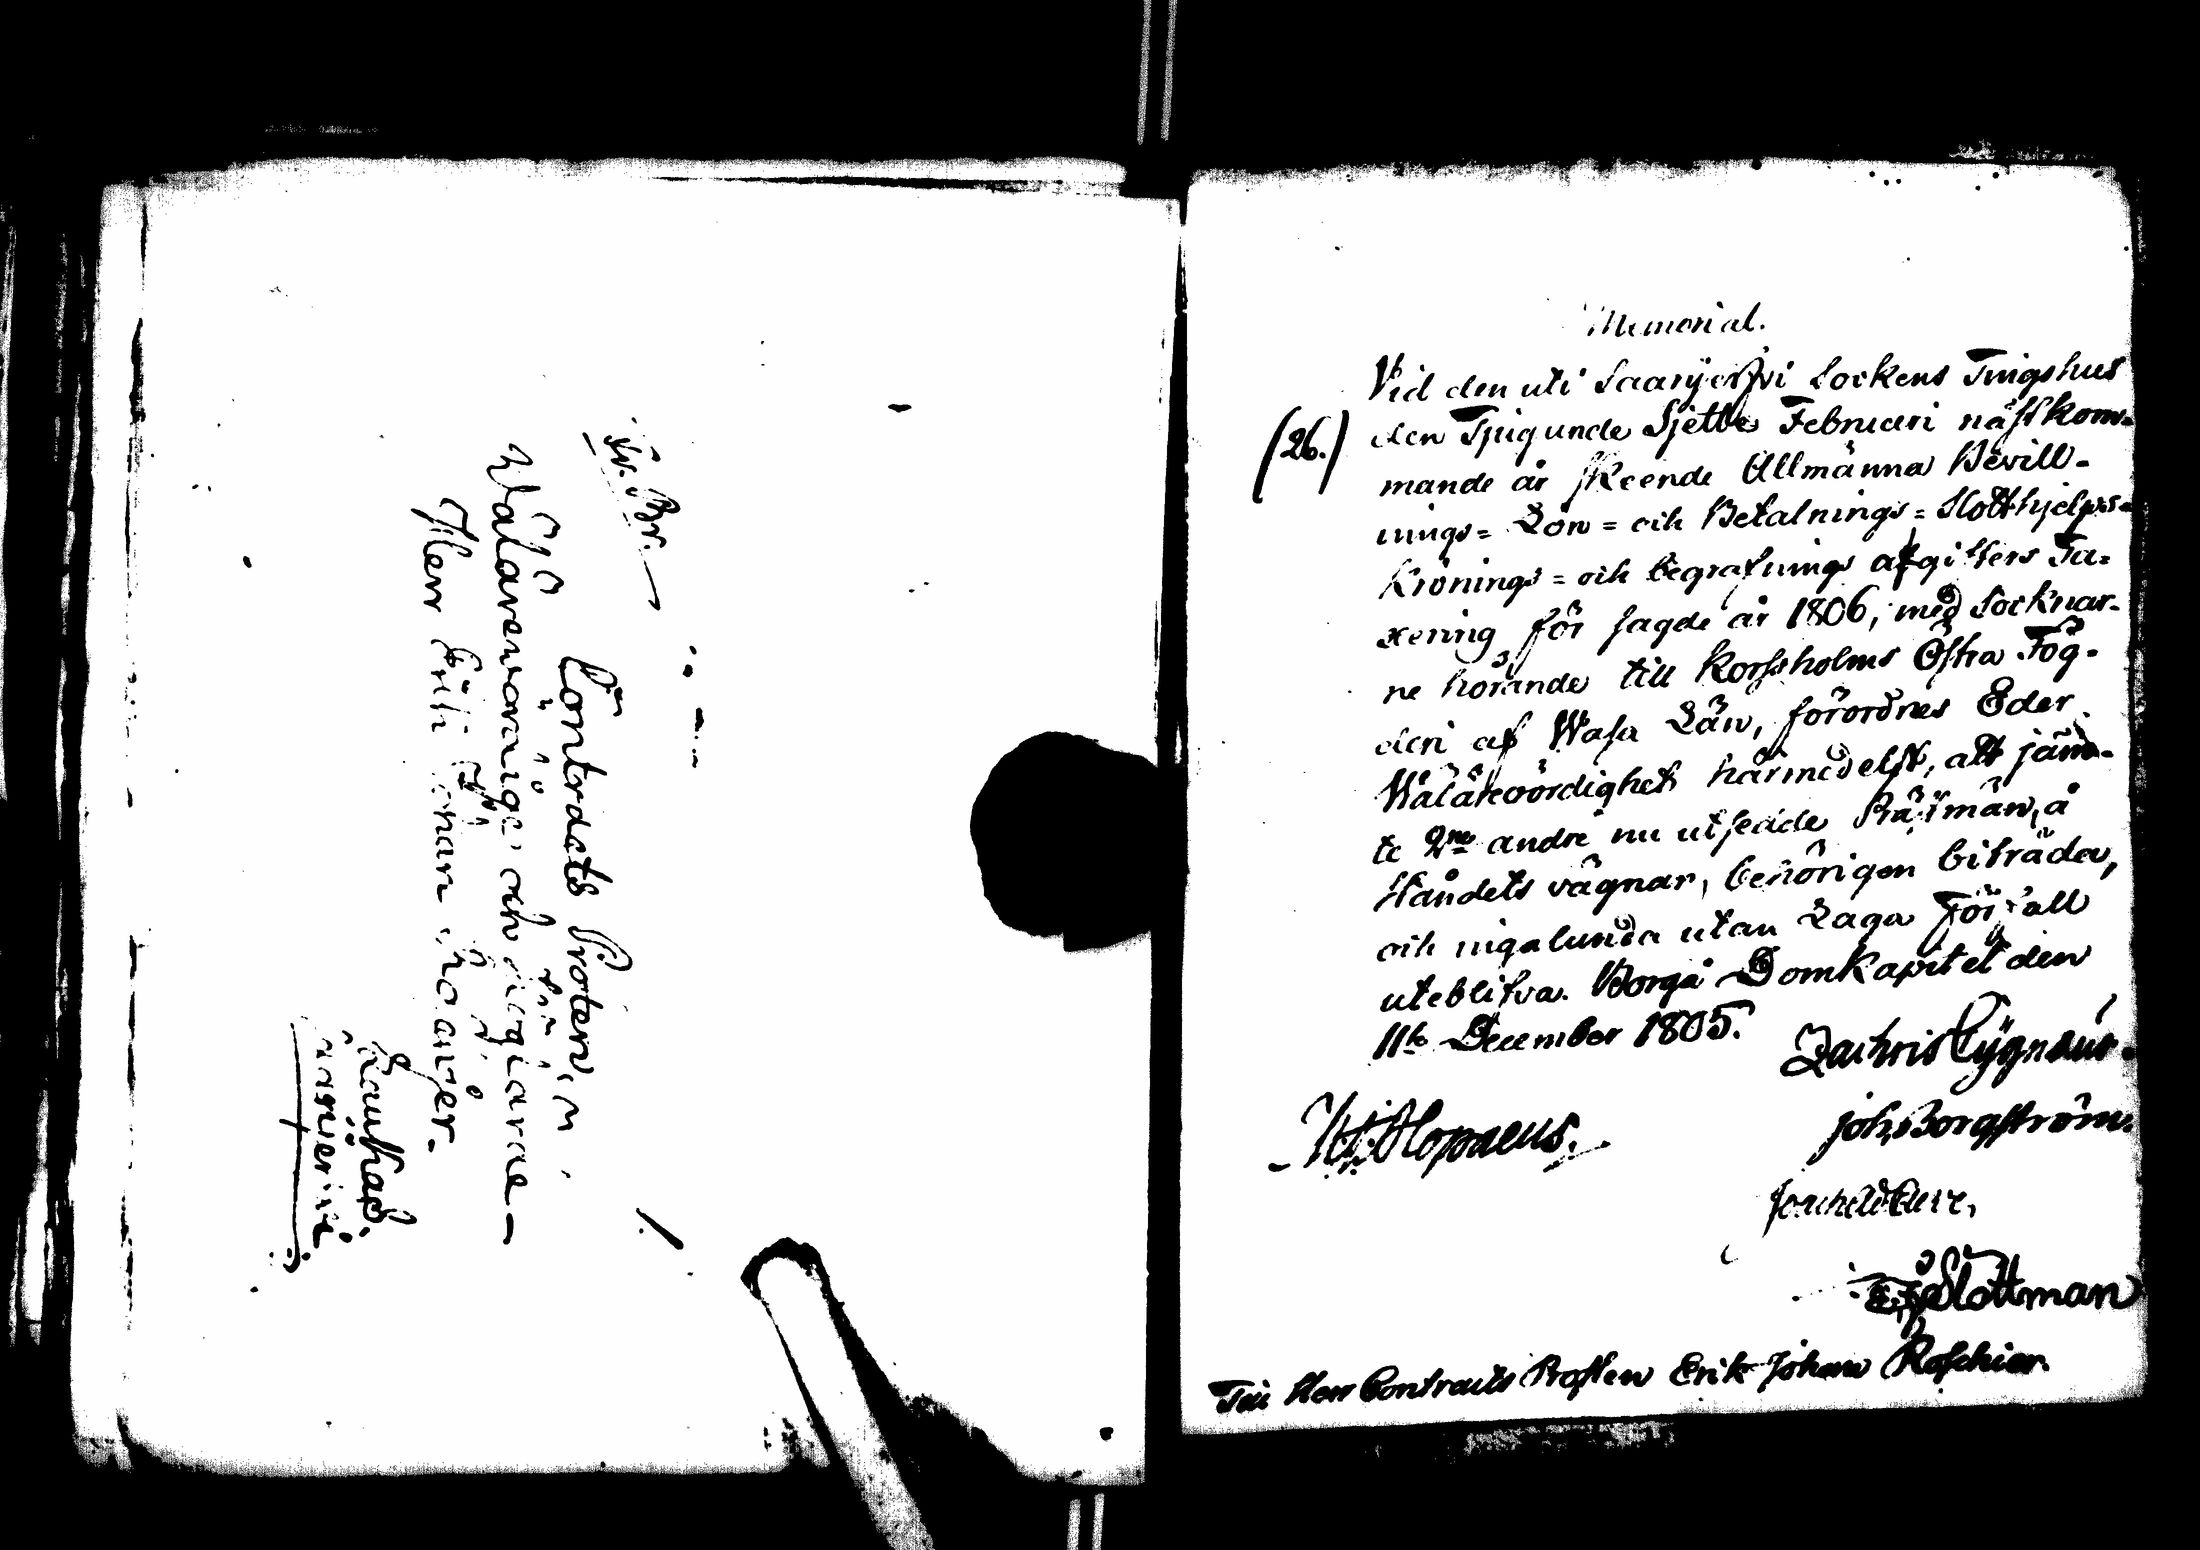 Kr. Br.
Contracts Prosten,
Wälärevördige och
Herr Erik Johan
Laukas.
Memorial.
Vid den uti Saarijerfvi Sockens Tingshus
(26.) den Tjugunde Sjette Februari nästkom-
mande år skeende Allmänna Bevill-
nings= Lön= och Betalnings= Slotthjelps=
Krönings= och begrafnings afgifters Ta-
xering för sagde år 1806, med Socknar-
ne hörande till Korssholms Östra Fög-
deri af Wasa Län, förordnes Eder
Wälärevördighet härmedelst, att jäm-
te 2ne andre nu utsedde Prästmän, å
Ståndets vägnar, behörigen biträda,
och ingalunda utan Laga Förfall
uteblifva. Borgå Domkapitel den
11te December 1805.
Zachris Cygnæus.
Hopaeus.
joh. Borgström.
Slottman
Till Herr Contracts Prosten Erik Johan Roschier.